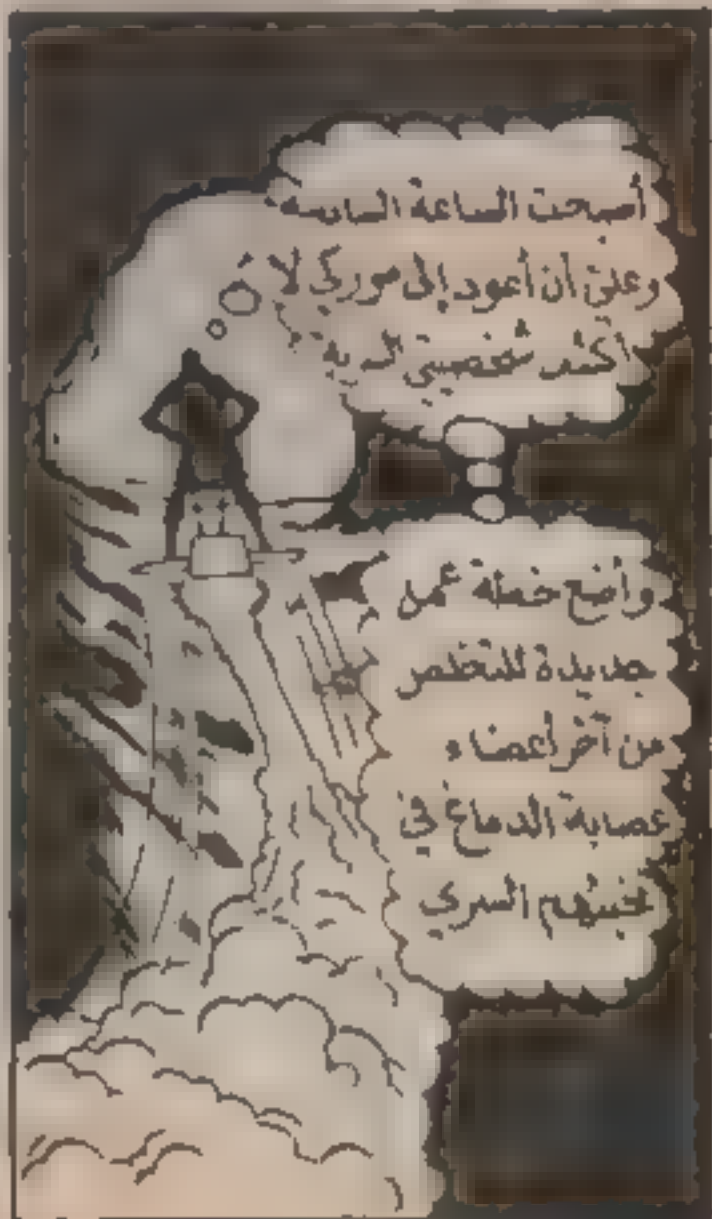 أصبحت الساعة السادسه
وعليّ أن أعود إلى صورتي لا
شخصيتي السرية
وأضع خطة عمل
جديدة للتخلص
من آخر أعضاء
عصابة الدماغ في
مخبئهم السري